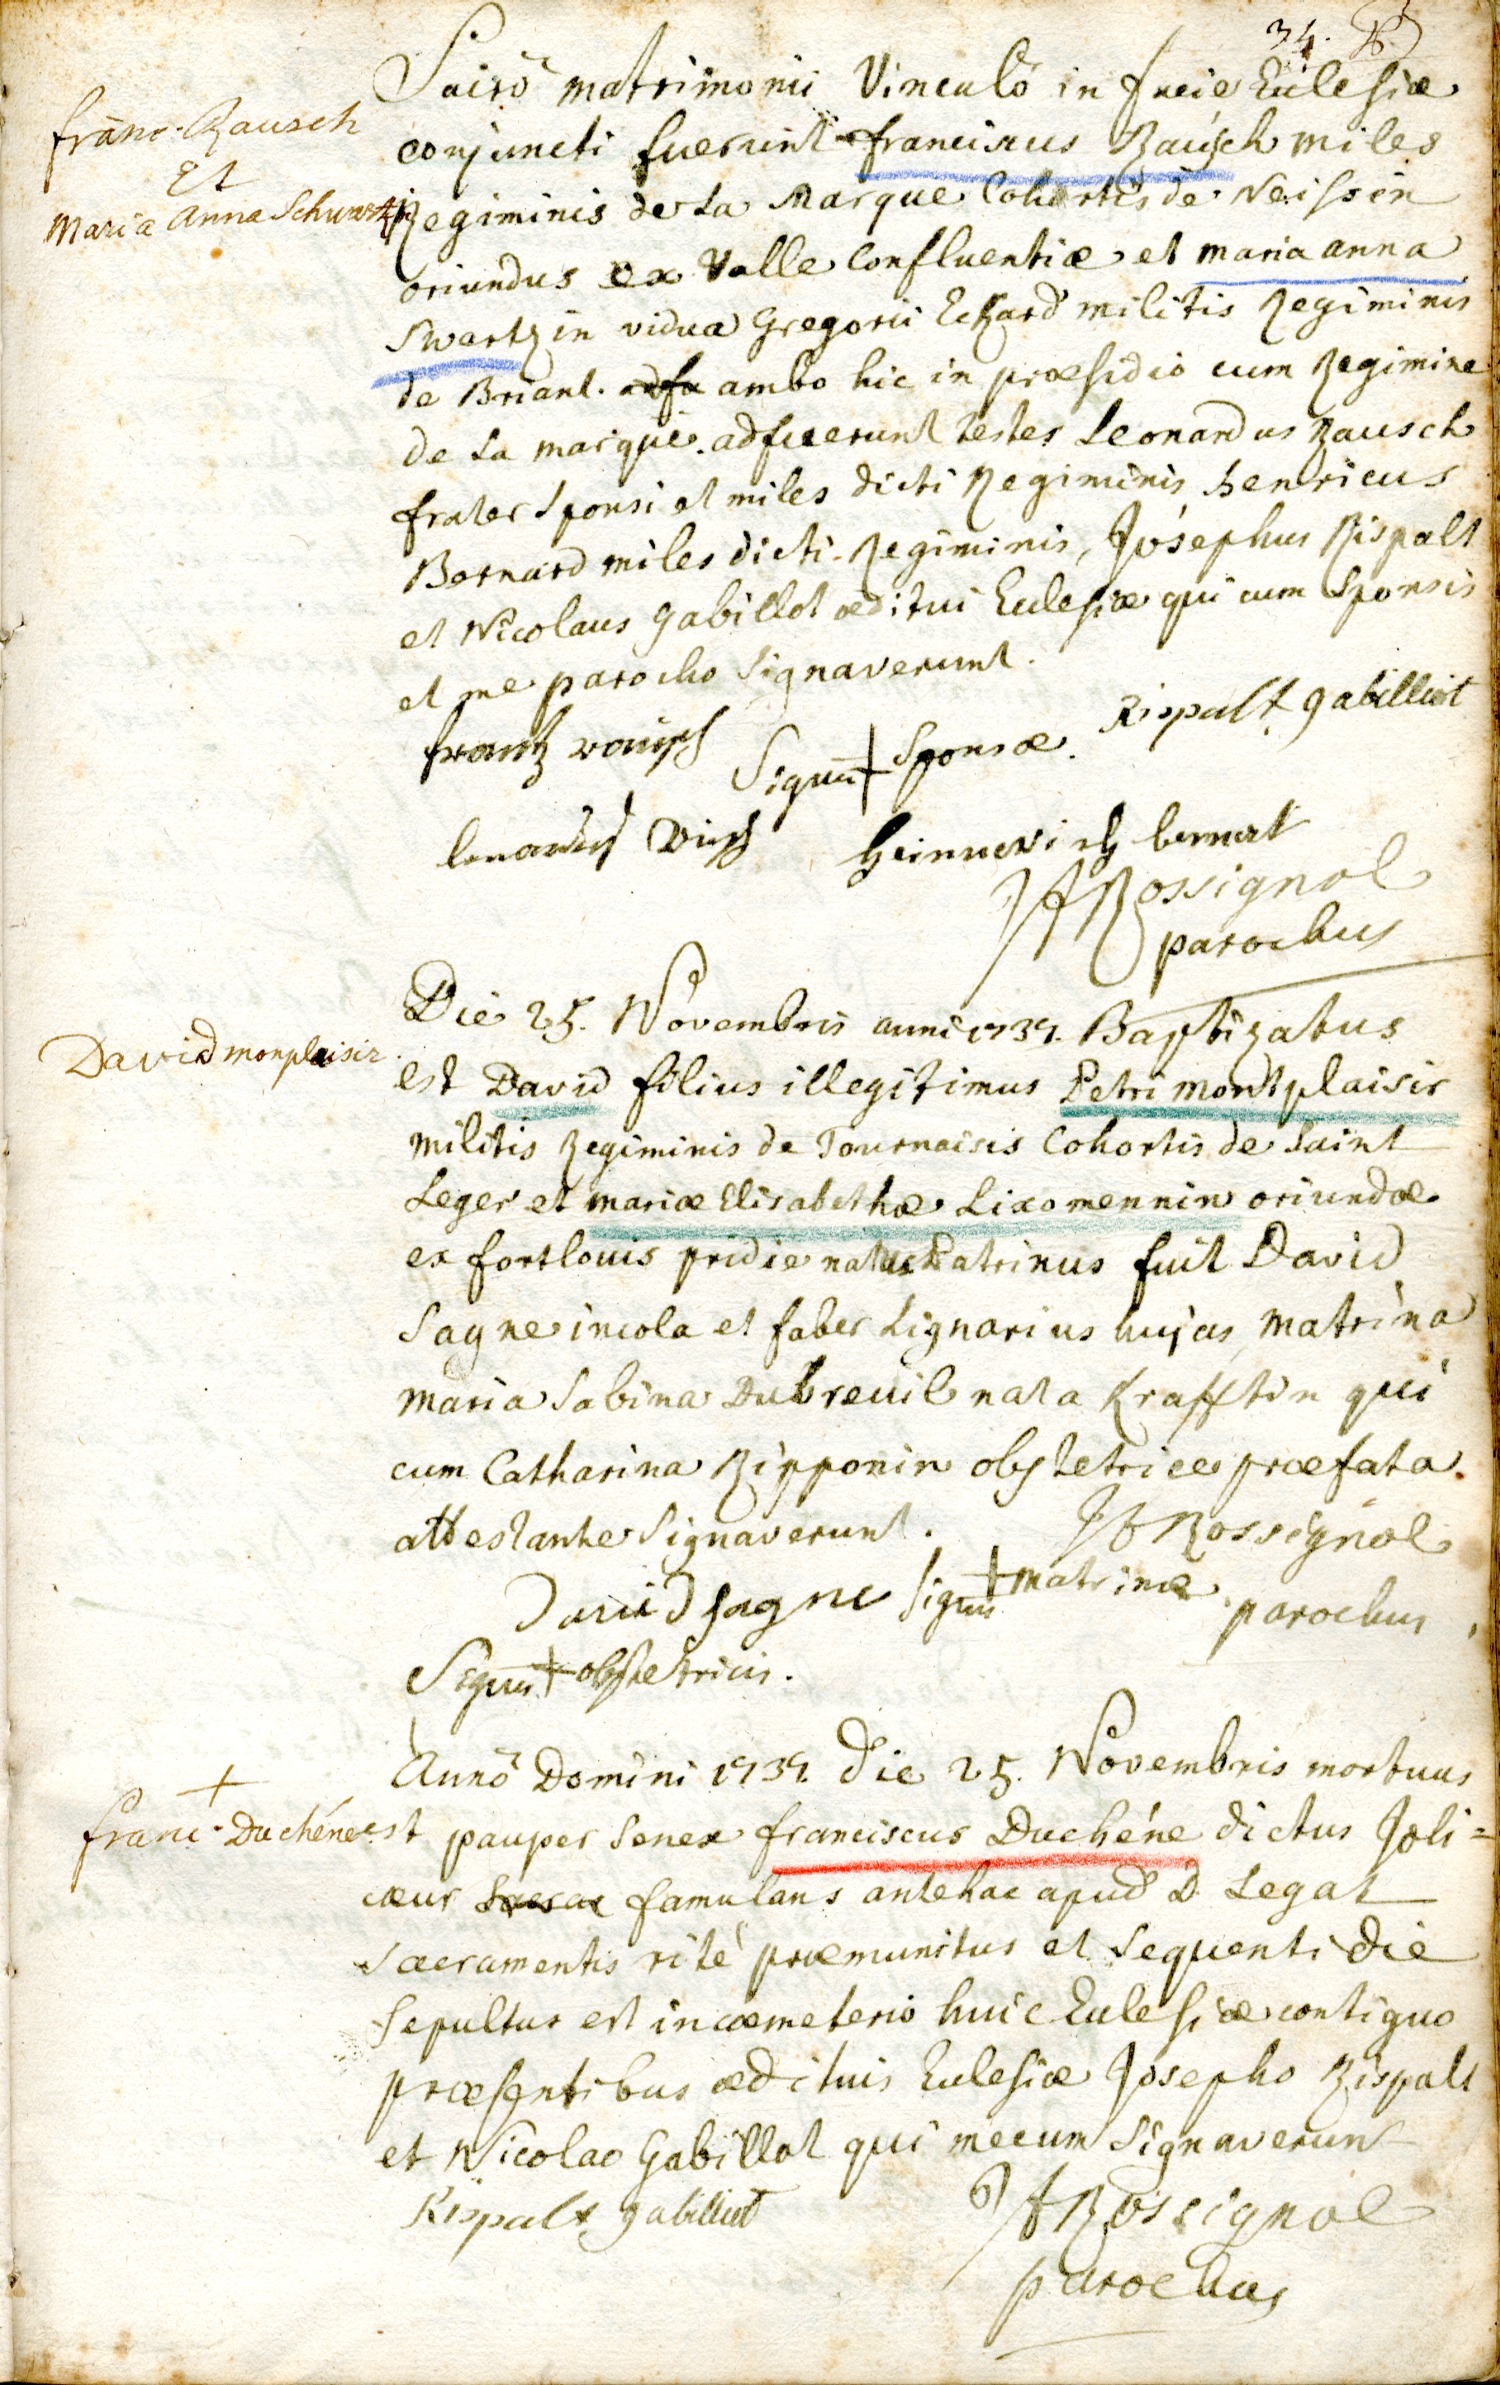 34.
Sacrô matrimonii Vinculô in facie Ecclesiæ
franc. Rausch
Et
Maria Anna Schwartzin
conjuncti fuerunt franciscus Rausch miles
Regiminis de La Marque Cohortis de Neissen
oriundus ex Valle Confluentiæ et maria anna
Swartzin vidua Gregorii Eckard militis Regiminis
de Briant. adfu ambo hic in præsidio cum Regimine
de La marque. adfuerunt testes Leonardus Rausch
frater sponsi et miles dicti Regiminis henricus
Bernard miles dicti Regiminis, Josephus Rispalt
et Nicolaus gabillot æditui Ecclesiæ qui cum sponsis
et me parocho signaverunt.
frantz rausch Signū + Sponsæ. Rispalt gabilliot
heinnerich bernart
JARossignol
parochus
David monplaisir.
Die 25. Novembris anni 1737. Baptizatus
est David filius illegitimus Petri montplaisir
militis Regiminis de Tournaisis Cohortis de Saint
Leger et mariæ Elisabethæ Lixomennin oriundæ
ex fortlouis pridie natus Patrinus fuit David
Sagne incola et faber Lignarius hujas, matrina
maria Sabina Dubreuil nata Krafftin qui
cum Catharina Ripponin obstetrice præfata
attestante signaverunt. JARossignol
David sagne signū + matrinæ. parochus
Signū + obstetricis.
+
franc. Duchéne
Annô Domini 1737. die 25. Novembris mortuus
est pauper senex franciscus Duchéne dictus Joli=
cœur famulans antehac apud D. Legat
sacramentis rité præmunitus et sequenti die
sepultus est in cæmeterio huic Ecclesiæ contiguo
præsentibus ædituis Ecclesiæ Josepho Rispalt
et Nicolao Gabillot qui mecum signaverunt
Rispalt gabilliot JARossignol
parochus